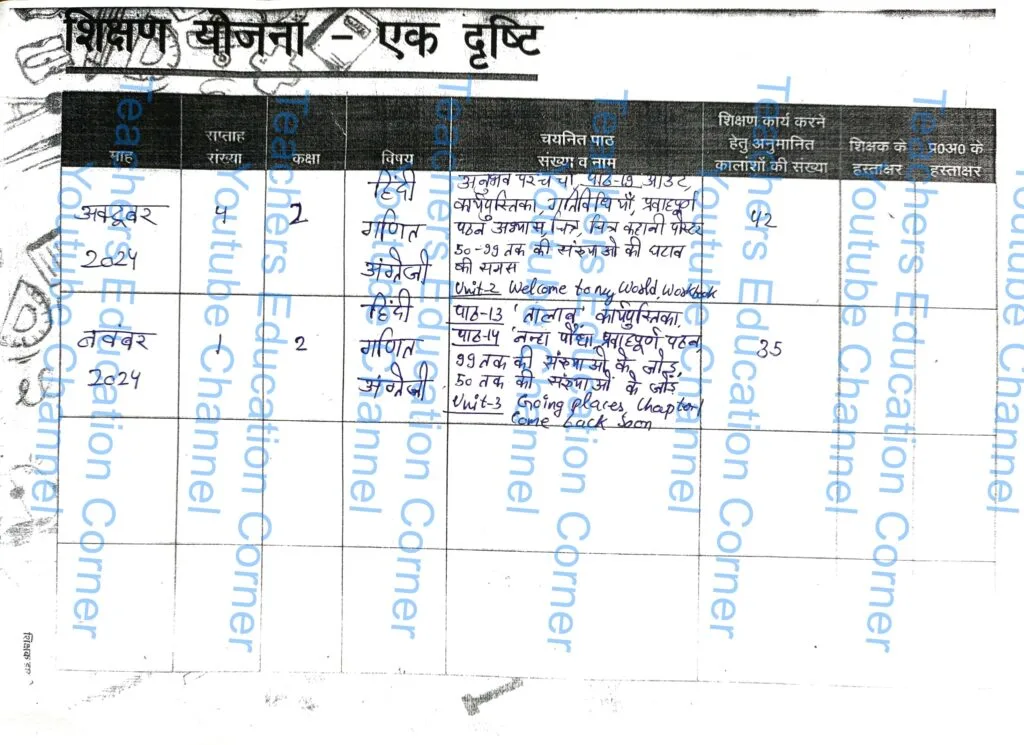 शिक्षण योजना – एक दृष्टि
माह
सप्ताह
संख्या
कक्षा
विषय
चयनित पाठ
संख्या व नाम
शिक्षण कार्य करने
हेतु अनुमानित
कालांशों की संख्या
शिक्षक के
हस्ताक्षर
प्र0अ0 के
हस्ताक्षर
अक्टूबर
2024
4
2
हिंदी
गणित
अंग्रेजी
अनुभव पर चर्चा, पाठ-19 आउट,
कार्यपुस्तिका, गतिविधियाँ, प्रवाहपूर्ण
पठन अभ्यास, चित्र, चित्र कहानी पोस्टर
50-99 तक की संख्याओं की घटाव
की समझ
Unit-2 Welcome to my World Workbook
42
नवंबर
2024
1
2
हिंदी
गणित
अंग्रेजी
पाठ-13 'तालाब' कार्यपुस्तिका,
पाठ-14 'नन्हा पौधा' प्रवाहपूर्ण पठन,
99 तक की संख्याओं के जोड़,
50 तक की संख्याओं के जोड़
Unit-3 Going places, Chapter-1
Come back soon
35
Teachers Education Corner
Youtube Channel
Teachers Education Corner
Youtube Channel
Teachers Education Corner
Youtube Channel
Teachers Education Corner
Youtube Channel
Teachers Education Corner
Youtube Channel
Teachers Education Corner
Youtube Channel